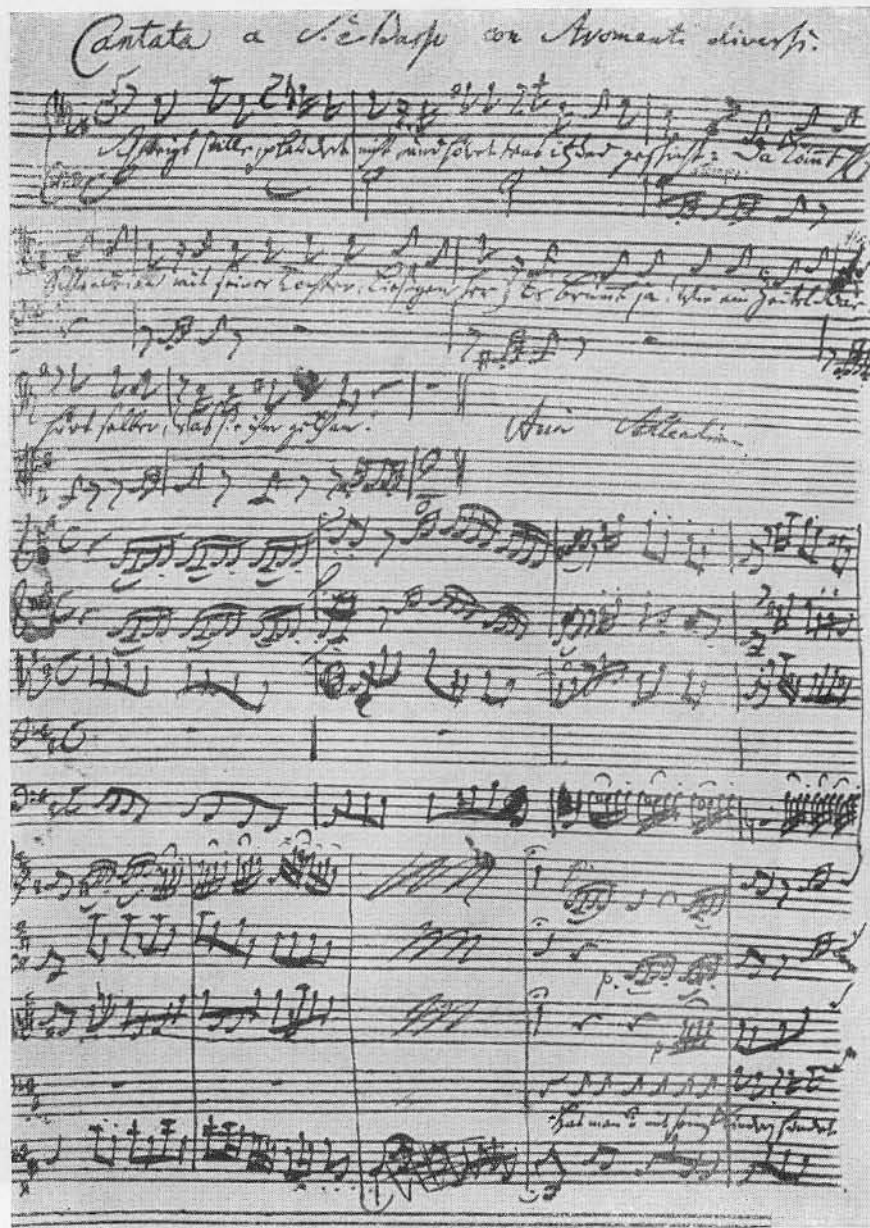 Cantata a S. è Basso con Stromenti diversi.
Schweigt stille, plaudert nicht und höret was itzund geschicht: Da kömmt H
Schlendrian mit seiner Tochter, Liesgen her; Er brummt ja, wie ein Zeidel Bär
hört selber, was sie ihm gethan.
Aria Schlendrian
Hat man mit Kindern hundert